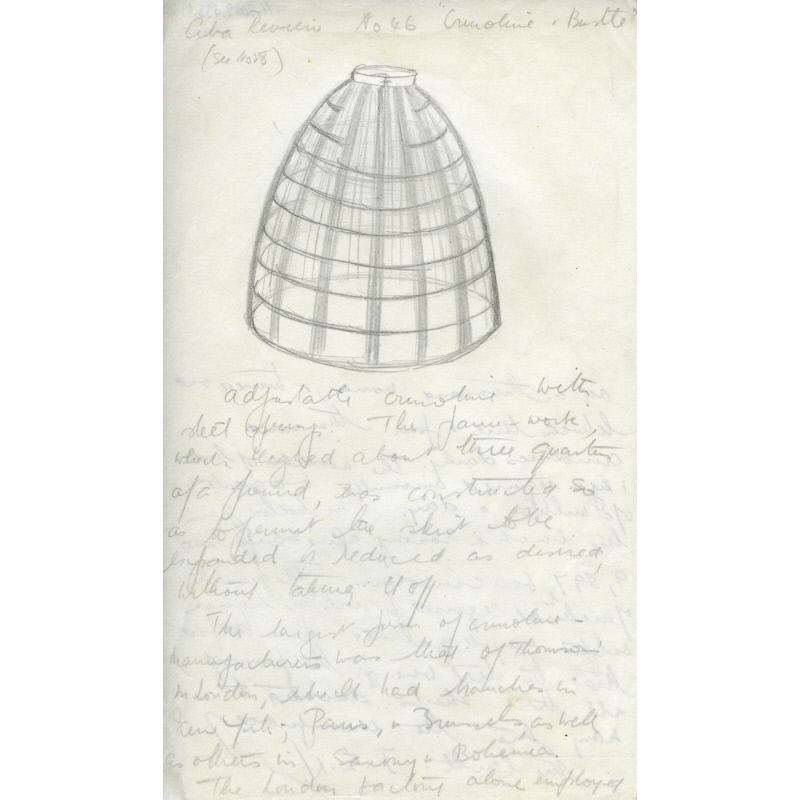 Ciba Review No 46 "Crinoline & Bustle"
(see No 28)
adjustable crinoline with
steel springs. The frame-work,
which weighed about three quarters
of a pound, was constructed so
as to permit the skirt to be
expanded or reduced as desired,
without taking it off
The largest firm of crinoline-
manufacturers was that of Thomson
in London, which had branches in
New York, Paris, & Brussels as well
as others in Saxony & Bohemia.
The London factory alone employed